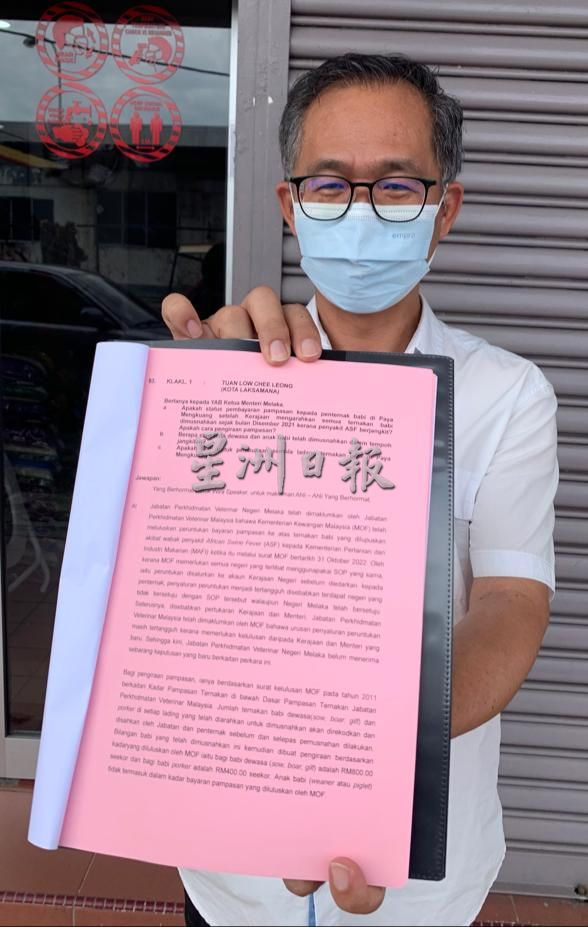 empro
93. KLAKL. 1 : TUAN LOW CHEE LEONG
(KOTA LAKSAMANA)
Bertanya kepada YAB Ketua Menteri Melaka.
a Apakah status pembayaran pampasan kepada penternak babi di Paya
Mengkuang setelah Kerajaan mengarahkan semua ternakan babi
dimusnahkan sejak bulan Disember 2021 kerana penyakit ASF berjangkit?
Apakah cara pengiraan pampasan?
b Berapa dewasa dan anak babi telah dimusnahkan dalam tempoh
c Apakah ladang ternakan Paya
Mengkuang
星洲日報
Jawapan:
Yang Berhormat Speaker, untuk makluman Ahli – Ahli Yang Berhormat.
a) Jabatan Perkhidmatan Veterinar Negeri Melaka telah dimaklumkan oleh Jabatan
Perkhidmatan Veterinar Malaysia bahawa Kementerian Kewangan Malaysia (MOF) telah
meluluskan peruntukan bayaran pampasan ke atas ternakan babi yang dilupuskan
akibat wabak penyakit African Swine Fever (ASF) kepada Kementerian Pertanian dan
Industri Makanan (MAFI) ketika itu melalui surat MOF bertarikh 31 Oktober 2022. Oleh
kerana MOF memerlukan semua negeri yang terlibat menggunapakai SOP yang sama,
iaitu peruntukan disalurkan ke akaun Kerajaan Negeri sebelum diedarkan kepada
penternak, penyaluran peruntukan menjadi tertangguh disebabkan terdapat negeri yang
tidak bersetuju dengan SOP tersebut walaupun Negeri Melaka telah bersetuju.
Seterusnya, disebabkan pertukaran Kerajaan dan Menteri, Jabatan Perkhidmatan
Veterinar Malaysia telah dimaklumkan oleh MOF bahawa urusan penyaluran peruntukan
masih tertangguh kerana memerlukan kelulusan daripada Kerajaan dan Menteri yang
baru. Sehingga kini, Jabatan Perkhidmatan Veterinar Negeri Melaka belum menerima
sebarang keputusan yang baru berkaitan perkara ini.
Bagi pengiraan pampasan, ianya berdasarkan surat kelulusan MOF pada tahun 2011
berkaitan Kadar Pampasan Ternakan di bawah Dasar Pampasan Ternakan Jabatan
Perkhidmatan Veterinar Malaysia. Jumlah ternakan babi dewasa(sow, boar, gilt) dan
porker di setiap ladang yang telah diarahkan untuk dimusnahkan akan direkodkan dan
disahkan oleh Jabatan dan penternak sebelum dan selepas pemusnahan dilakukan.
Bilangan babi yang telah dimusnahkan ini kemudian dibuat pengiraan berdasarkan
kadaryang diluluskan oleh MOF iaitu bagi babi dewasa (sow, boar, gilt) adalah RM800.00
seekor dan bagi babi porker adalah RM400.00 seekor. Anak babi (weaner atau piglet)
tidak termasuk dalam kadar bayaran pampasan yang diluluskan oleh MOF.